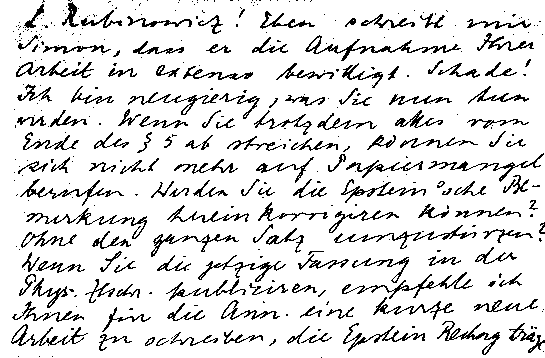 L. Rubinowicz! Eben schreibt mir
Simon, dass er die Aufnahme Ihrer
Arbeit in extenso bewilligt. Schade!
Ich bin neugierig, was Sie nun tun
werden. Wenn Sie trotzdem alles vom
Ende des § 5 ab streichen, können Sie
sich nicht mehr auf Papiermangel
berufen. Werden Sie die Epstein'sche Be-
merkung hineinkorrigiren können?
Ohne den ganzen Satz umzustürzen?
Wenn Sie die jetzige Fassung in der
Phys. Ztschr. publiciren, empfehle ich
Ihnen für die Ann. eine kurze neue
Arbeit zu schreiben, die Epstein Rechng träge